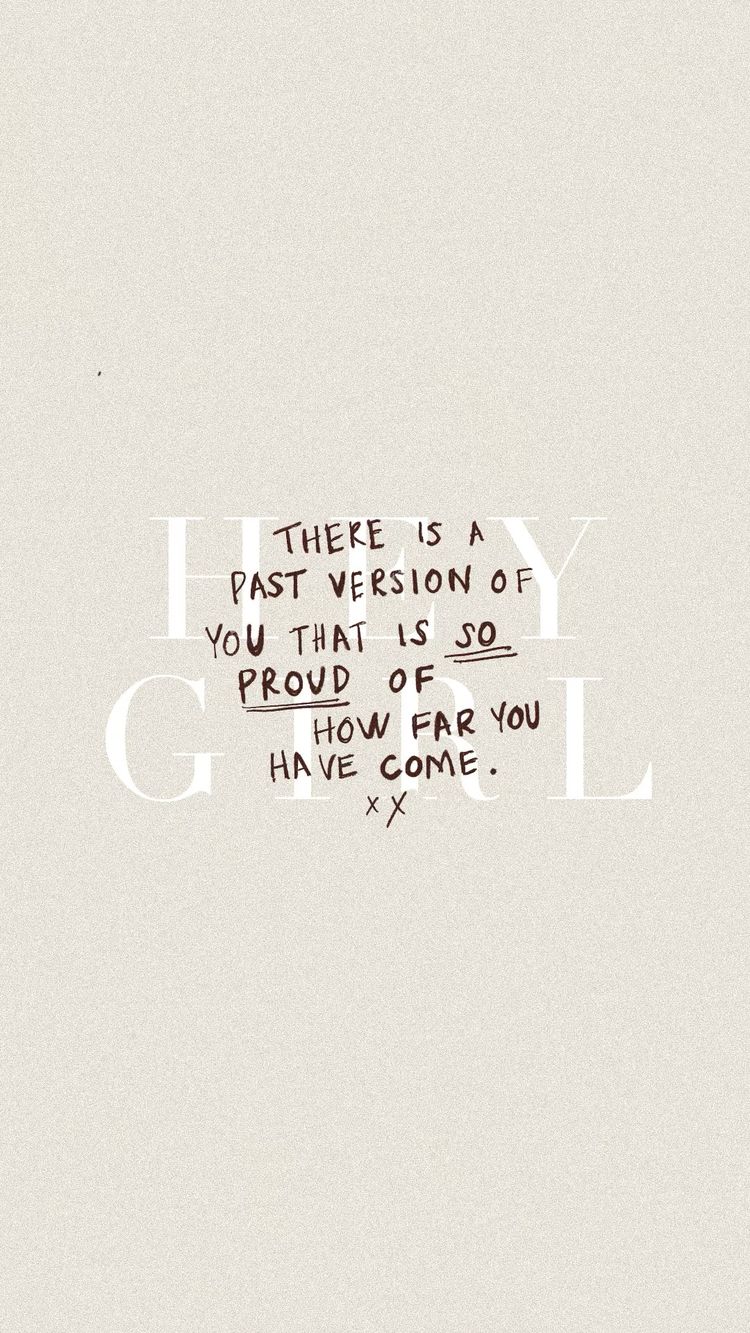 HEY
GIRL
THERE IS A
PAST VERSION OF
YOU THAT IS SO
PROUD OF
HOW FAR YOU
HAVE COME.
xX